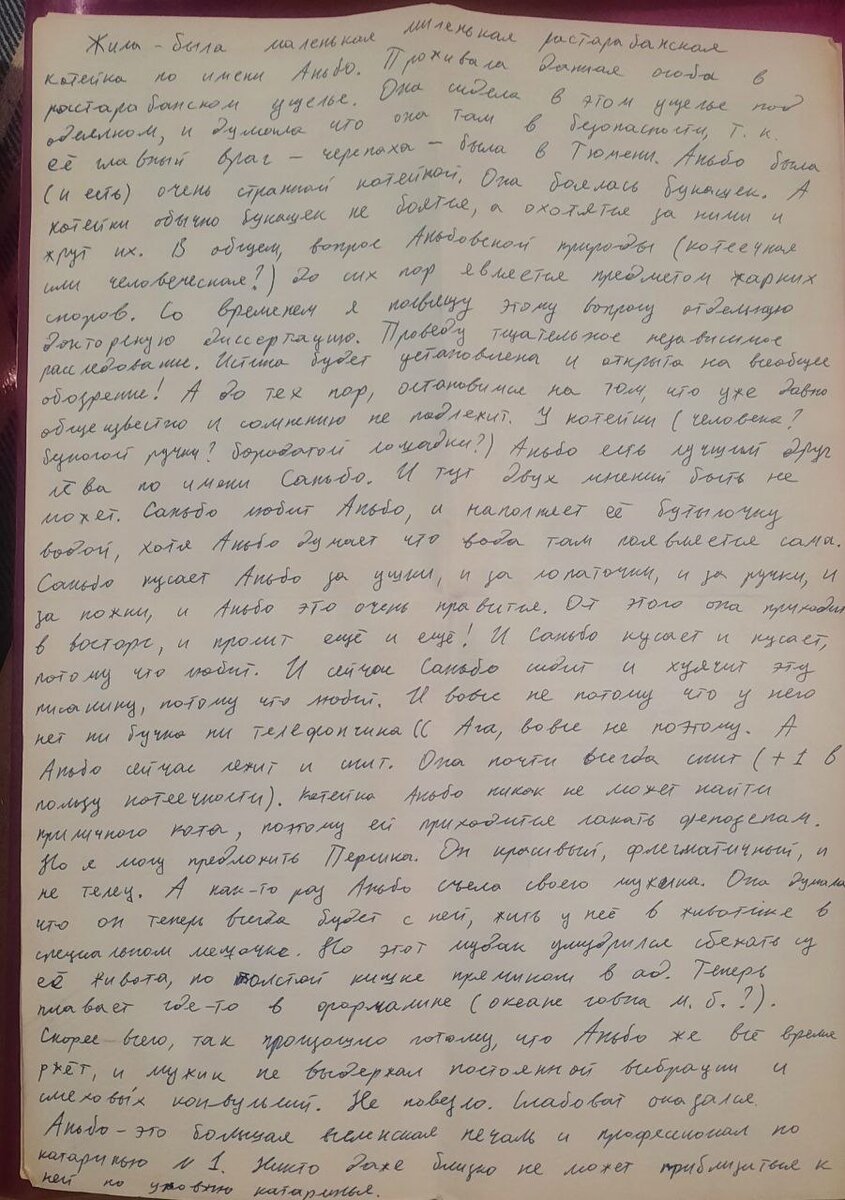 Жила-была маленькая миленькая растарабанская
котейка по имени Аньбо. Проживала данная особа в
растарабанском ущелье. Она сидела в этом ущелье под
одеялком, и думала что она там в безопасности, т. к.
её главный враг – черепаха – была в Тюмени. Аньбо была
(и есть) очень странной котейкой. Она боялась букашек. А
котейки обычно букашек не боятся, а охотятся за ними и
жрут их. В общем, вопрос Аньбовской природы (котеечная
или человеческая?) до сих пор является предметом жарких
споров. Со временем я посвящу этому вопросу отдельную
докторскую диссертацию. Проведу тщательное независимое
расследование. Истина будет установлена и открыта на всеобщее
обозрение! А до тех пор, остановимся на том, что уже давно
общеизвестно и сомнению не подлежит. У котейки (человека?
буйногой ручки? бородатой лошадки?) Аньбо есть лучший друг
по имени Саньбо. И тут двух мнений быть не
может. Саньбо любит Аньбо, и наполняет её бутылочку
водой, хотя Аньбо думает что вода там появляется сама.
Саньбо кусает Аньбо за ушки, и за лопаточки, и за ручки, и
за ножки, и Аньбо это очень нравится. От этого она приходит
в восторг, и просит ещё и ещё! И Саньбо кусает и кусает,
потому что любит. И сейчас Саньбо сидит и хуячит эту
писанину, потому что любит. И вовсе не потому что у него
нет ни бучка ни телефончика (( Ага, вовсе не поэтому. А
Аньбо сейчас лежит и спит. Она почти всегда спит (+1 в
пользу котеечности). Котейка Аньбо никак не может найти
приличного кота, поэтому ей приходится лакать феподепам.
Но я могу предложить Персика. Он красивый, флегматичный, и
не телец. А как-то раз Аньбо съела своего мужика. Она думала
что он теперь всегда будет с ней, жить у неё в животике в
специальном мешочке. Но этот мудак умудрился сбежать из
её живота, по толстой кишке прямиком в ад. Теперь
плавает где-то в формалине (океане говна м. б.?).
Скорее всего, так произошло потому, что Аньбо же всё время
ржёт, и мужик не выдержал постоянной вибрации и
смеховых конвульсий. Не повезло. Слабоват оказался.
Аньбо – это большая вселенская печаль и профессионал по
катаринью №1. Никто даже близко не может приблизиться к
ней по уровню катаринья.